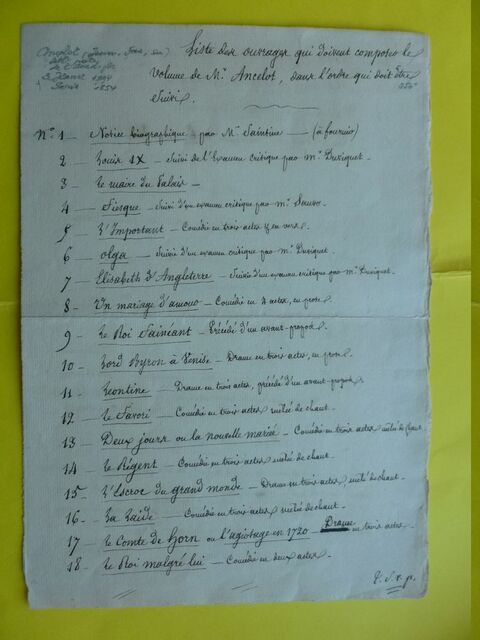 Ancelot (Jacq. Fois, ...)
Liste des ouvrages qui doivent composer le
volume de Mr. Ancelot, dans l'ordre qui doit être
suivi.
No. 1 - Notice biographique par Mr. Saintine - (à fournir)
2 Louis IX - suivi de l'Examen critique par mr. Duviquet -
3 - Le maire du Palais -
4 - Fiesque - suivi d'un examen critique par mr. Sauvo -
5 L'Important - Comédie en trois actes & en vers
6 - Olga - suivie d'un examen critique par mr. Duviquet
7 - Elisabeth d'Angleterre - suivie d'un examen critique par mr. Duviquet.
8 - Un mariage d'amour - Comédie en 3 actes, en prose.
9 - Le Roi Fainéant - Précédé d'un avant-propos.
10 - Lord Byron à Venise - Drame en trois actes, en prose
11 - Léontine - Drame en trois actes, précédé d'un avant-propos
12 - Le Favori - Comédie en trois actes mêlée de chant.
13 - Deux jours ou la nouvelle mariée - Comédie en trois actes mêlée de chant.
14 - Le Régent - Comédie en trois actes mêlée de chant.
15 - L'Escroc du grand monde - Drame en trois actes, mêlé de chant -
16 - La Laide - Comédie en trois actes mêlée de chant -
17 - Le Comte de Horn ou l'agiotage en 1720 Drame en trois actes -
18 - Le Roi malgré lui - Comédie en deux actes -
T. S. v. p.